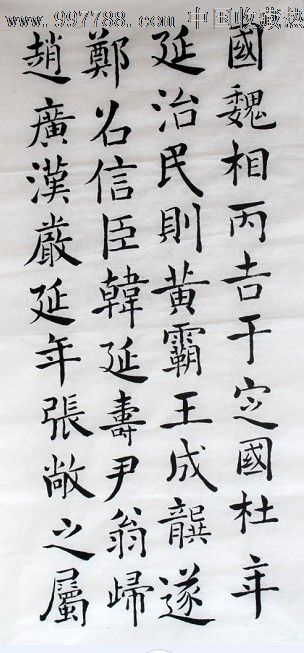 www.997788.com 中国收藏热
國魏相丙吉于定國杜年
延治民則黃霸王成龔遂
鄭召信臣韓延壽尹翁歸
趙廣漢嚴延年張敞之屬